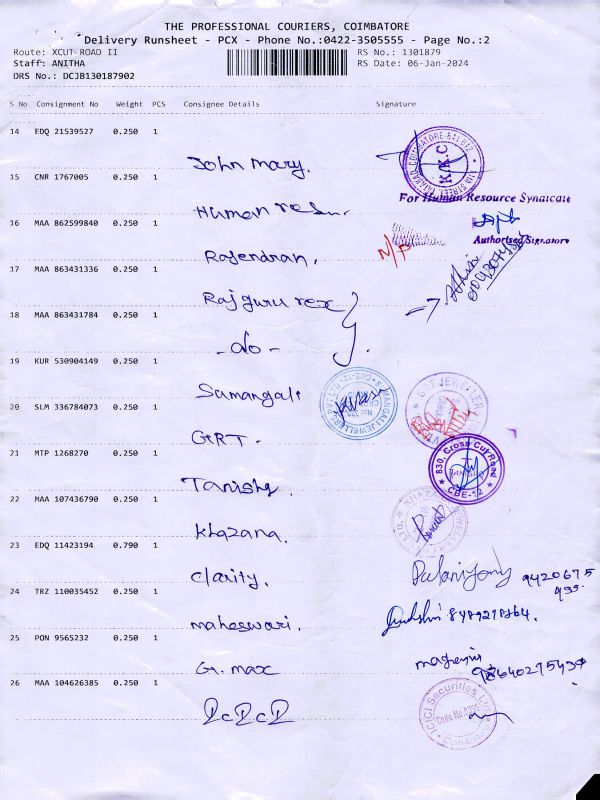 THE PROFESSIONAL COURIERS, COIMBATORE
Delivery Runsheet - PCX - Phone No.:0422-3505555 - Page No.:2
Route: XCUT-ROAD II
RS No.: 1301879
Staff: ANITHA
RS Date: 06-Jan-2024
DRS No.: DCJB130187902
S No Consignment No Weight PCS Consignee Details Signature
14 EDQ 21539527 0.250 1
John Mary.
15 CNR 1767005 0.250 1
For Human Resource Syndicate
Human
16 MAA 862599840 0.250 1
Authorised Signatory
N/P
Rajendran.
17 MAA 863431336 0.250 1
Rajguru rex
18 MAA 863431784 0.250 1
- do -
19 KUR 530904149 0.250 1
Samangali
20 SLM 336784073 0.250 1
GRT.
21 MTP 1268270 0.250 1
830, Cross Cut Road
CBE-12
Tanishq.
22 MAA 107436790 0.250 1
Khazana.
23 EDQ 11423194 0.790 1
Clarity.
24 TRZ 110035452 0.250 1
Maheswari.
25 PON 9565232 0.250 1
G. max
26 MAA 104626385 0.250 1
ICICI Securities